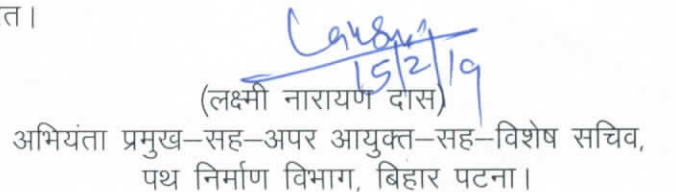 त।
15/2/19
(लक्ष्मी नारायण दास)
अभियंता प्रमुख–सह–अपर आयुक्त–सह–विशेष सचिव,
पथ निर्माण विभाग, बिहार पटना।